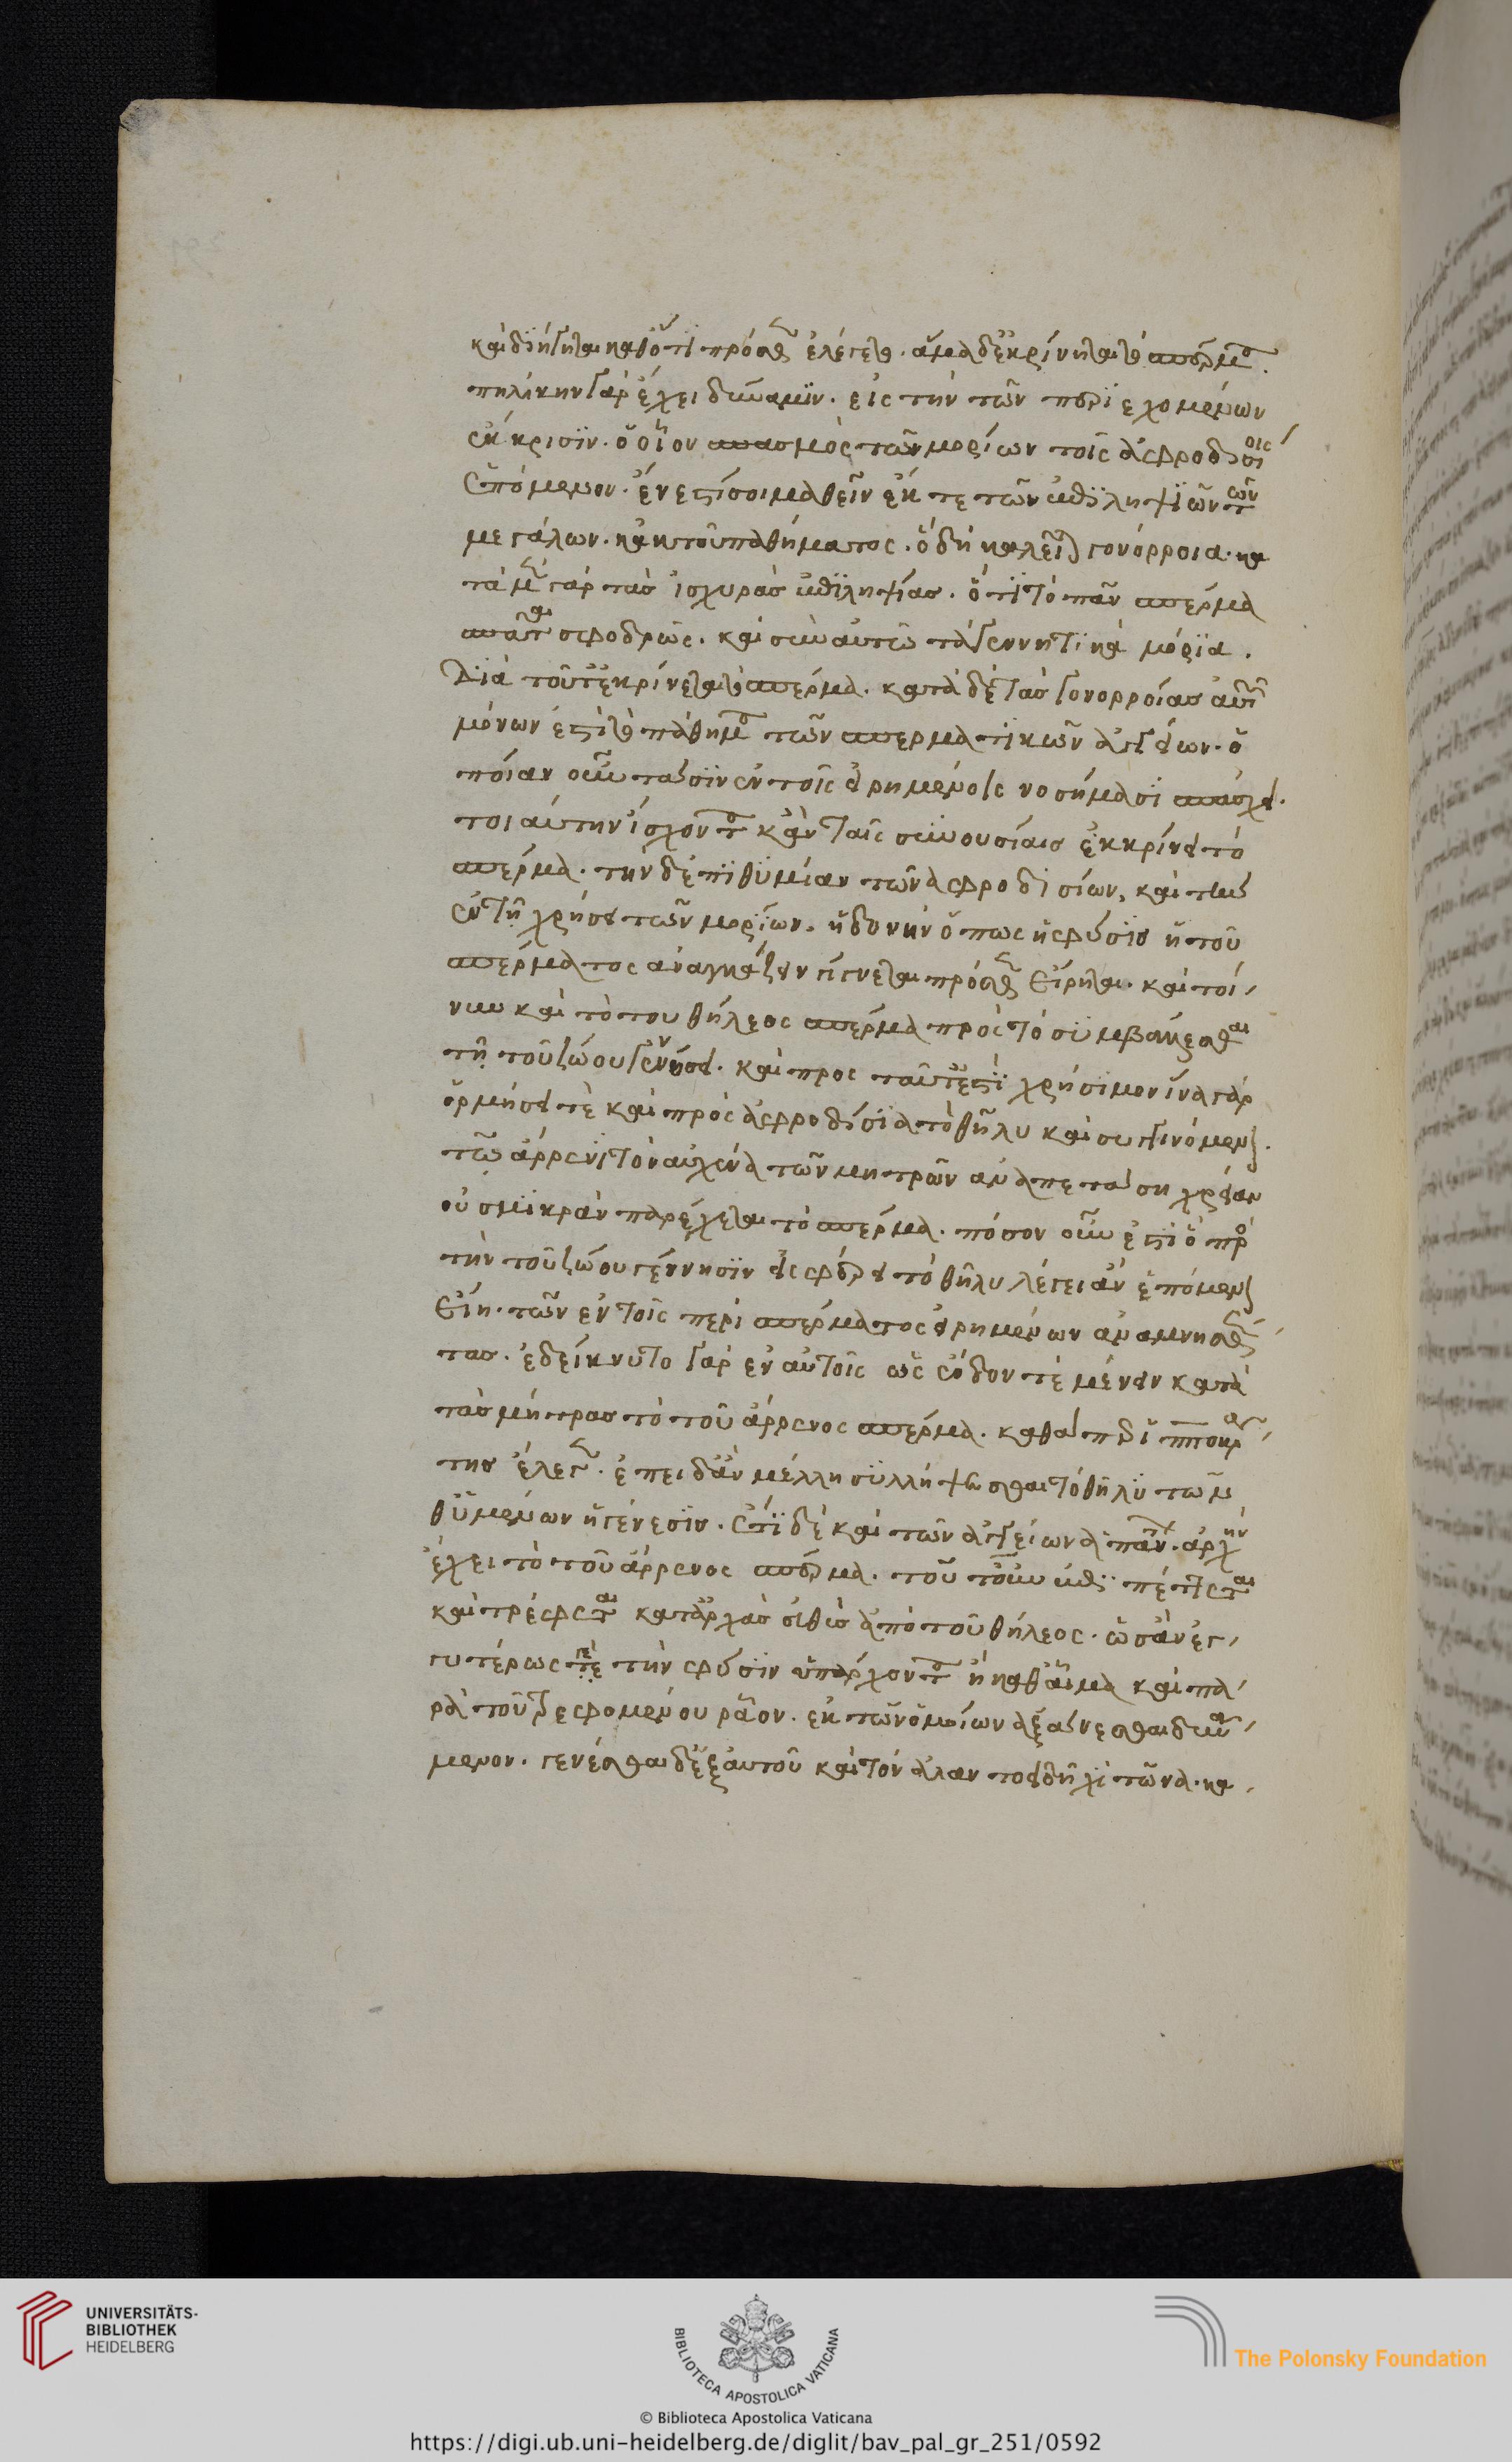 καὶ διηγῆται καθότι πρόσθεν ἐλέγετο. ἅμα δ' ἐκκρίνηται τὸ σπέρμα.
πηλίκην γὰρ ἔχει δύναμιν. εἰς τὴν τῶν περιεχομένων
ἔκκρισιν. ὁ οἷον σπασμὸς τῶν μορίων τοῖς ἀφροδισίοις
ἑπόμενον. ἔνεστί σοι μαθεῖν ἔκ τε τῶν ἐπιλήψιῶν τῶν
μεγάλων. κἀκ τοῦ παθήματος. ὃ δὴ καλεῖται γονόρροια. κα
τὰ μὲν γὰρ τὰς ἰσχυρὰς ἐπιληψίας. ὅτι τὸ πᾶν σπέρμα
σπᾶται σφοδρῶς. καὶ σὺν αὐτῶ τὰ γεννητικὰ μόρια.
Διὰ τοῦτ' ἐκκρίνεται τὸ σπέρμα. κατὰ δὲ τὰς γονορροίας αὐτῶν
μόνων ἐστὶ τὸ πάθημα τῶν σπερματικῶν ἀγγείων. ὁ
ποίαν οὖν τάσιν ἐν τοῖς εἰρημένοις νοσήμασι πάσχει.
τοιαύτην ἴσχοντα κἀν ταῖς συνουσίαις ἐκκρίνει τὸ
σπέρμα. τὴν δ' ἐπιθυμίαν τῶν ἀφροδισίων, καὶ τὴν
ἐν τῆ χρήσει τῶν μορίων. ἡδονὴν ὅπως ἡ φύσις ἡ τοῦ
σπέρματος ἀναγκάζειν γίνεται πρόσθεν εἴρηται. καὶ τοί-
νυν καὶ τὸ του θήλεος σπέρμα πρὸς τὸ συμβάλλεσθαι
τῆ τοῦ ζώου γεννήσει. καὶ προς ταῦτ' ἐστὶ χρήσιμον ἵνα γὰρ
ὁρμήσει τὲ καὶ πρὸς ἀφροδίσια τὸ θῆλυ καὶ συγγινόμενον.
τῶ ἄρρενι τὸν αὐχένα τῶν μητρῶν ἀναπετάση χρείαν
οὐ σμικρὰν παρέχεται τὸ σπέρμα. πόσον οὖν ἐστὶ ὃ πρὸς
τὴν τοῦ ζώου γέννησιν εἰσφέρει τὸ θῆλυ λέγειν ἂν ἑπόμενον
εἴη. τῶν ἐν τοῖς περὶ σπέρματος εἰρημένων ἀναμνησθέν-
τας. ἐδείκνυτο γὰρ ἐν αὐτοῖς ὡς ἔνδον τὲ μένειν κατὰ
τὰς μήτρας τὸ τοῦ ἄρρενος σπέρμα. καθάπερ ἱπποκρά-
της ἔλεγεν. ἐπειδὰν μέλλη συλλήψεσθαι τὸ θῆλυ τῶν
θυμένων ἡ γένεσις. ἔτι δὲ καὶ τῶν ἀγγείων ἁπάντων ἀρχὴν
ἔχει τὸ τοῦ ἄρρενος σπέρμα. τοῦ τοίνυν ἐπιπέττεται
καὶ τρέφεται κατ' ἀρχὰς εὐθὺς ἀπὸ τοῦ θήλεος. ὡς ἂν ἐγ-
γυτέρως τὲ τὴν φύσιν ὑπάρχοντα ἢ καθ' αἷμα καὶ πα-
ρὰ τοῦ τρεφομένου ρᾶον. ἐκ τῶν ὁμοίων αὐξάνεσθαι δυνά-
μενον. γενέσθαι δ' ἐξ αὐτοῦ καὶ τὸν ἀλαντοειδῆ χιτῶνα. κα-
UNIVERSITÄTS-
BIBLIOTHEK
HEIDELBERG
BIBLIOTECA APOSTOLICA VATICANA
The Polonsky Foundation
© Biblioteca Apostolica Vaticana
https://digi.ub.uni-heidelberg.de/diglit/bav_pal_gr_251/0592